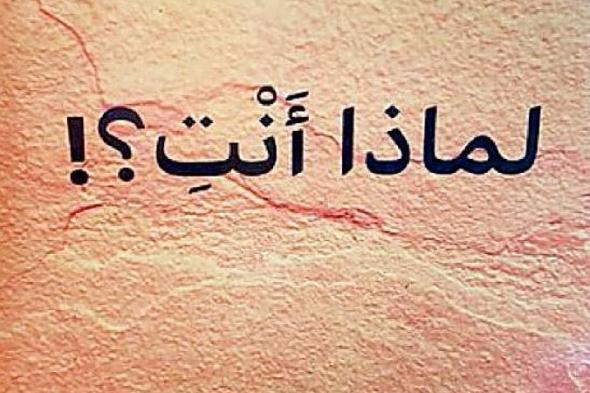 لماذا أَنْتِ؟!